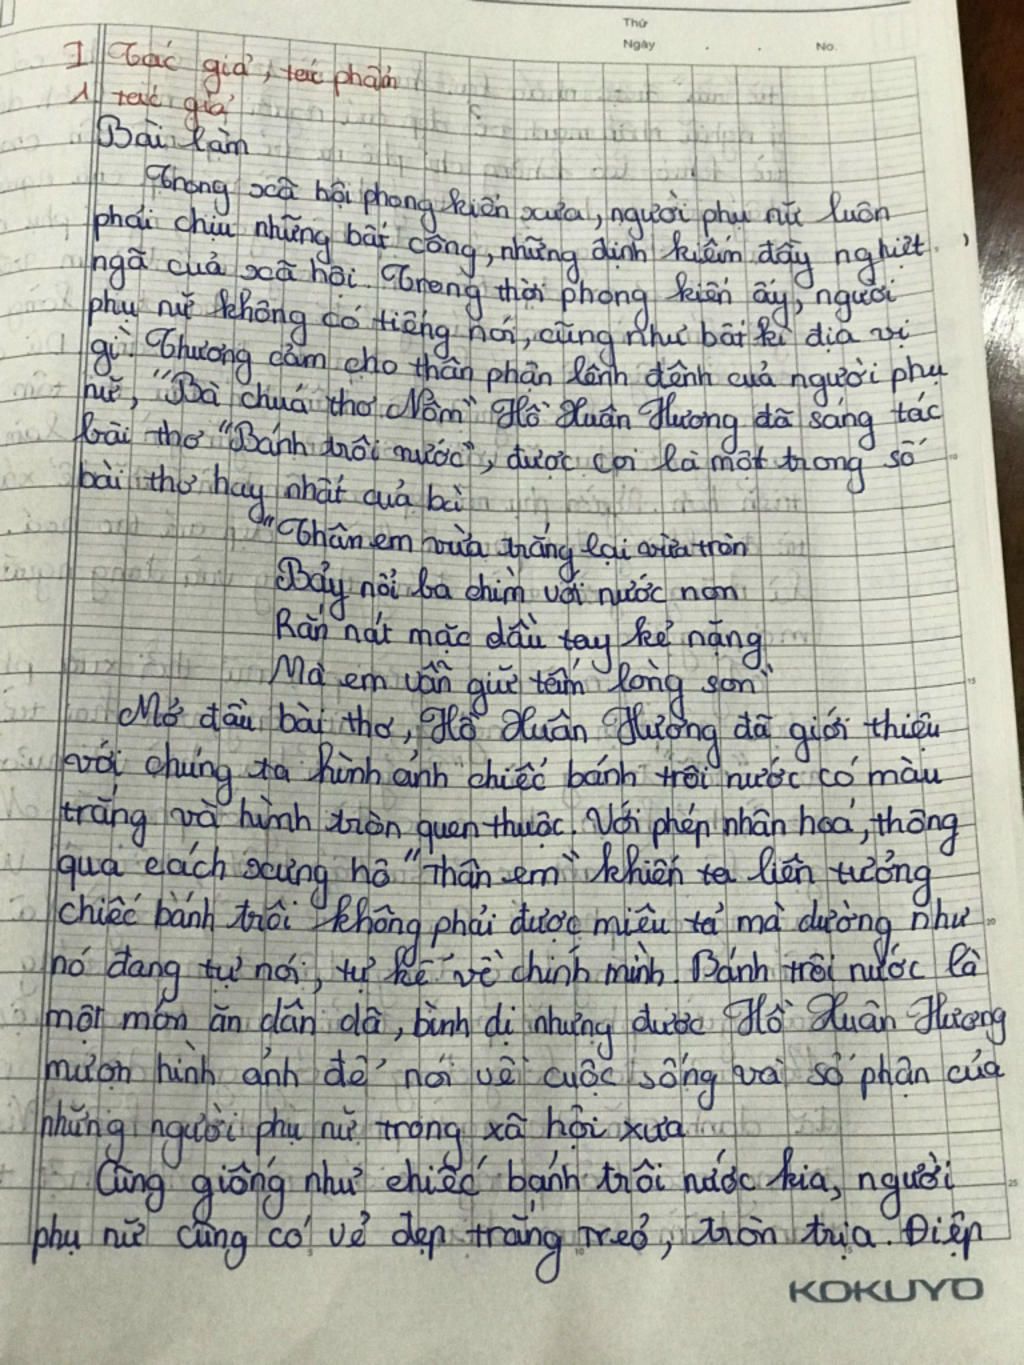 Thứ
Ngày . . No.
I Tác giả, tác phẩm
1 tác giả
Bài làm
Trong xã hội phong kiến xưa, người phụ nữ luôn
phải chịu những bất công, những định kiến đầy nghiệt
ngã của xã hội. Trong thời phong kiến ấy, người
phụ nữ không có tiếng nói, cũng như bất kì địa vị
gì. Thương cảm cho thân phận lênh đênh của người phụ
nữ, "Bà chúa thơ Nôm" Hồ Xuân Hương đã sáng tác
bài thơ "Bánh trôi nước", được coi là một trong số
bài thơ hay nhất của bà
"Thân em vừa trắng lại vừa tròn
Bảy nổi ba chìm với nước non
Rắn nát mặc dầu tay kẻ nặng
Mà em vẫn giữ tấm lòng son"
Mở đầu bài thơ, Hồ Xuân Hương đã giới thiệu
với chúng ta hình ảnh chiếc bánh trôi nước có màu
trắng và hình tròn quen thuộc. Với phép nhân hoá, thông
qua cách xưng hô "thân em" khiến ta liên tưởng
chiếc bánh trôi không phải được miêu tả mà dường như
nó đang tự nói, tự kể về chính mình. Bánh trôi nước là
một món ăn dân dã, bình dị nhưng được Hồ Xuân Hương
mượn hình ảnh để nói về cuộc sống và số phận của
những người phụ nữ trong xã hội xưa
Cũng giống như chiếc bánh trôi nước kia, người
phụ nữ cũng có vẻ đẹp trắng trẻo, tròn trịa. Điệp
KOKUYO